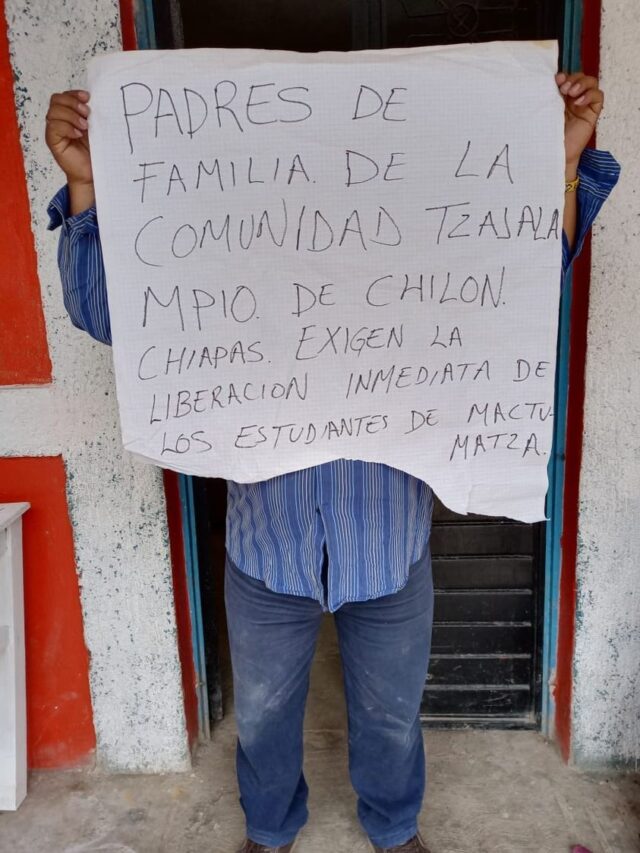 PADRES DE
FAMILIA. DE LA
COMUNIDAD TZAJALA
MPIO. DE CHILON.
CHIAPAS. EXIGEN LA
LIBERACION INMEDIATA DE
LOS ESTUDIANTES DE MACTU-
MATZA.